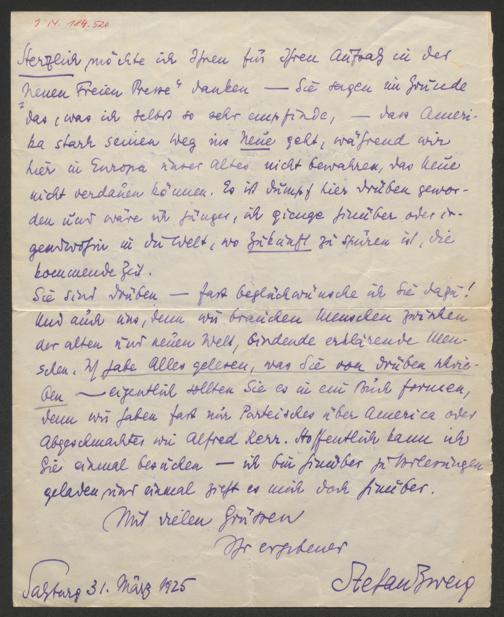 I N. 184.520
Herzlich möchte ich Ihnen für Ihren Aufsatz in der
"Neuen Freien Presse" danken — Sie sagen im Grunde
das, was ich selbst so sehr empfinde, — dass Ameri-
ka stark seinen Weg ins Neue geht, während wir
hier in Europa unser Altes nicht bewahren, das Neue
nicht verdauen können. Es ist dumpf hier drüben gewor-
den und wäre ich jünger, ich gienge hinüber oder ir-
gendwohin in die Welt, wo Zukunft zu spüren ist, die
kommende Zeit.
Sie sind drüben — fast beglückwünsche ich Sie dazu!
Und auch uns, denn wir brauchen Menschen zwischen
der alten und neuen Welt, bindende erklärende Men-
schen. Ich habe Alles gelesen, was Sie von drüben schrie-
ben — eigentlich sollten Sie es in ein Buch formen,
denn wir haben fast nur Parteiisches über America oder
Abgeschmacktes wie Alfred Kerr. Hoffentlich kann ich
Sie einmal besuchen — ich bin hinüber zu Vorlesungen
geladen, und einmal zieht es mich doch hinüber.
Mit vielen Grüssen
Ihr ergebener
Stefan Zweig
Salzburg 31. März 1925